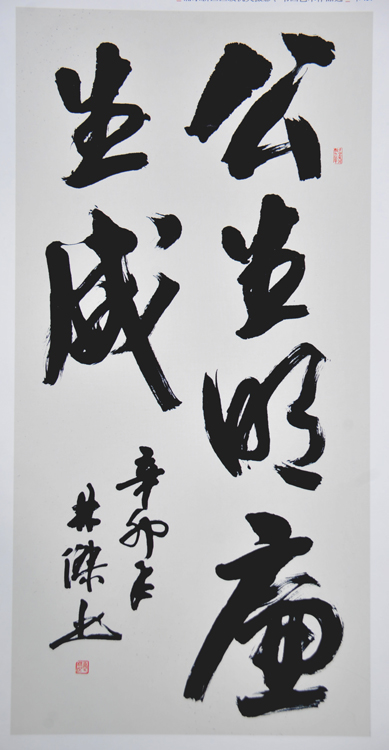 公生明廉
生威
辛卯年
林傑书